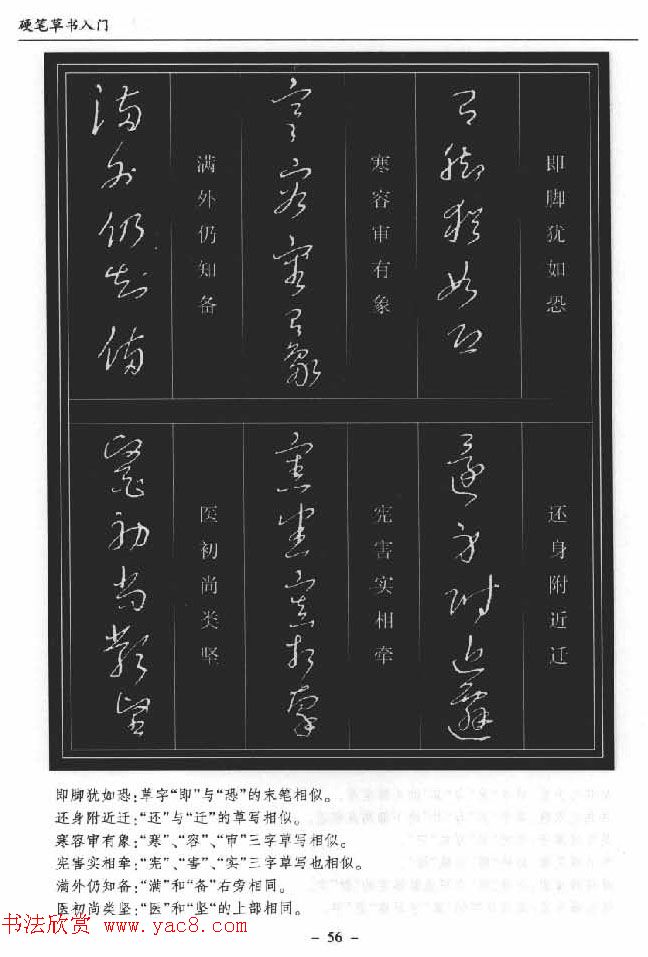 硬笔草书入门
即脚犹如恐
寒容审有象
满外仍知备
还身附近迁
宪害实相牵
医初尚类坚
即脚犹如恐:草字“即”与“恐”的末笔相似。
还身附近迁:“还”与“迁”的草写相似。
寒容审有象:“寒”、“容”、“审”三字草写相似。
宪害实相牵:“宪”、“害”、“实”三字草写也相似。
满外仍知备:“满”和“备”右旁相同。
医初尚类坚:“医”和“坚”的上部相同。
书法欣赏 www.yac8.com
- 56 -